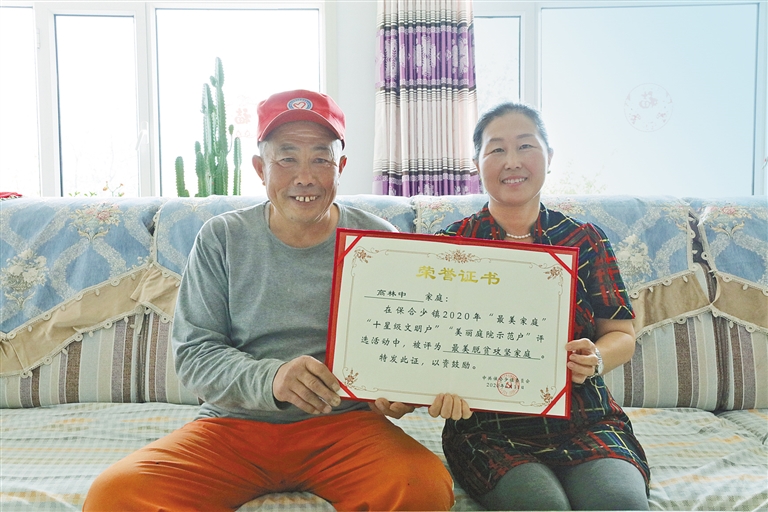 荣誉证书
高林中 家庭：
在保合少镇2020年“最美家庭”
“十星级文明户”“美丽庭院示范户”评
选活动中，被评为 最美脱贫攻坚家庭 。
特发此证，以资鼓励。